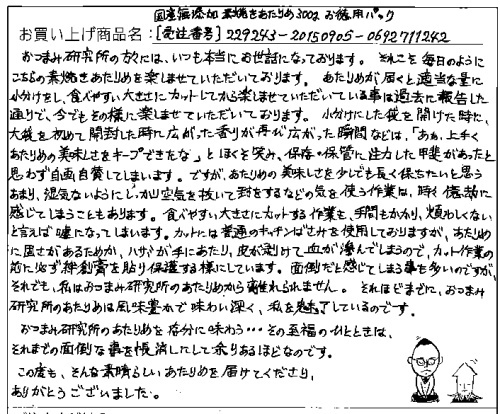 国産無添加 素焼きあたりめ300g お徳用パック
お買い上げ商品名：[受注番号] 229243-20150905-0692711242
おつまみ研究所の方々には、いつも本当にお世話になっております。それこそ毎日のように
こちらの素焼きあたりめを楽しませていただいております。あたりめが届くと適当な量に
小分けをし、食べやすい大きさにカットしてから楽しませていただいている事は過去に報告した
通りで、今でもその様に楽しませていただいております。小分けにした袋を開けた時に、
大袋を初めて開封した時に広がった香りが再び広がった瞬間などは、「あぁ、上手く
あたりめの美味しさをキープできたな」とほくそ笑み、保存・保管に注力した甲斐があったと
思わず自画自賛してしまいます。ですが、あたりめの美味しさを少しでも長く保ちたいと思う
あまり、湿気ないようにしっかり空気を抜いて封をするなどの気を使う作業は、時々億劫に
感じてしまうこともあります。食べやすい大きさにカットする作業も、手間もかかり、煩わしくない
と言えば嘘になってしまいます。カットには普通のキッチンばさみを使用しておりますが、あたりめ
に固さがあるためか、ハサミが手にあたり、皮が剥けて血が滲んでしまうので、カットの
前に必ず絆創膏を貼り保護する様にしています。面倒だと感じてしまう事も多いのですが、
それでも、私はおつまみ研究所のあたりめから離れられません。それほどまでに、おつまみ
研究所のあたりめは風味豊かで味わい深く、私を魅了しているのです。
おつまみ研究所のあたりめを存分に味わう…その至福のひとときは、
それまでの面倒な事を帳消しにして余りあるほどなのです。
この度も、そんな素晴らしいあたりめを届けてくださり、
ありがとうございました。